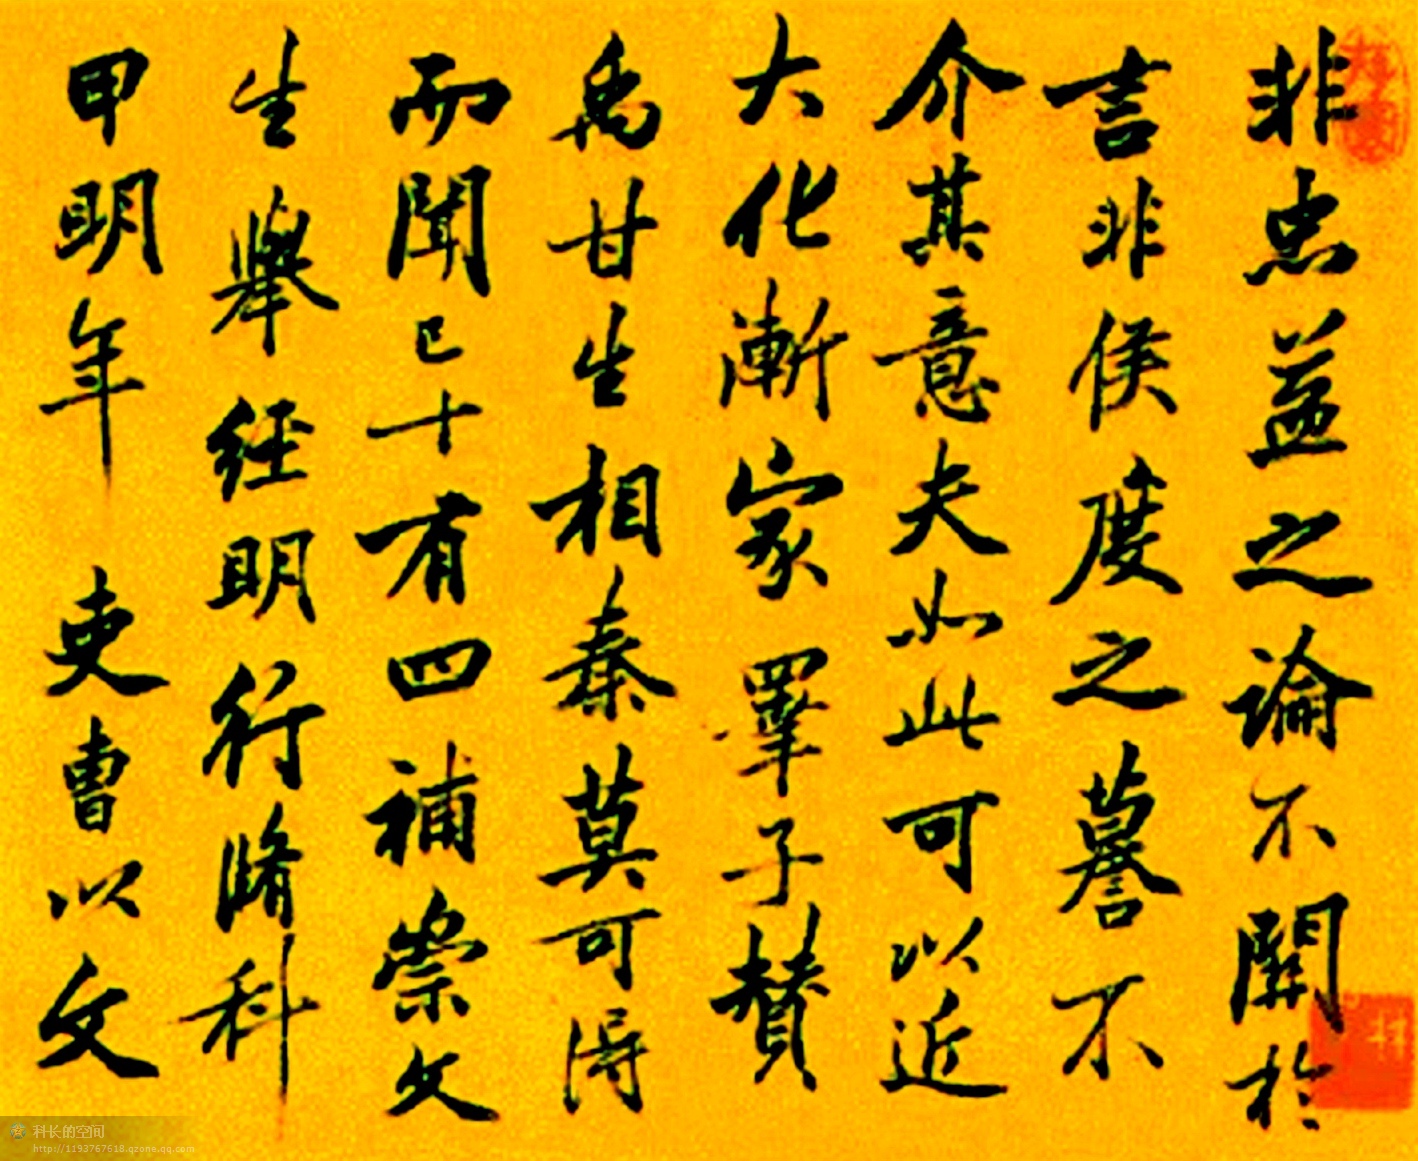 非忠益之論不關於
言非侯度之謩不
介其意夫如此可以近
大化漸家睪子贊
禹甘生相秦莫可得
而聞已十有四補崇文
生舉經明行脩科
甲明年吏曹以文
科长的空间
http://1193767618.qzone.qq.com